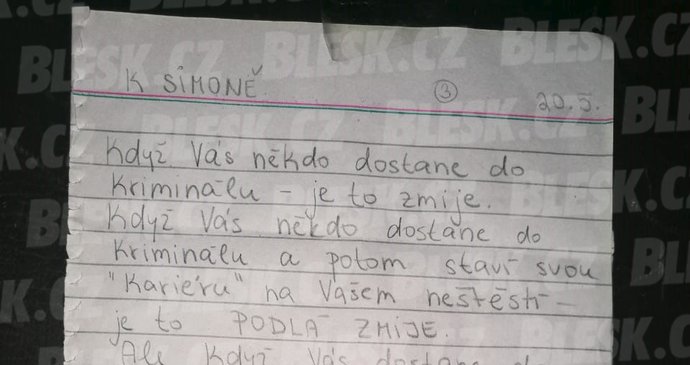 K SIMONĚ ③ 20.5.
Když Vás někdo dostane do
Kriminálu - je to zmije.
Když Vás někdo dostane do
Kriminálu a potom staví svou
"Kariéru" na Vašem neštěstí -
je to PODLÁ ZMIJE.
Ale Když Vás dostane d
BLESK.CZ